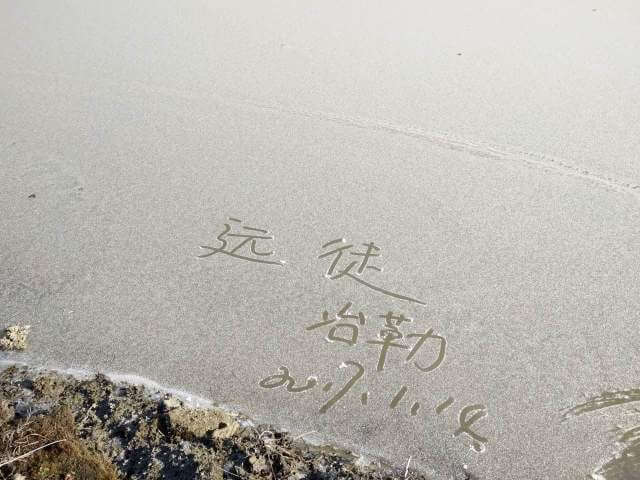 远 徒
冶勒
2017.1.14